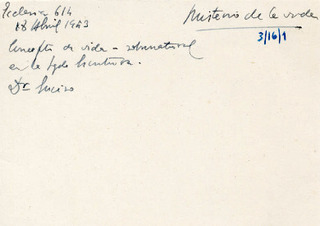 Ecclesia 614
18 Abril 1953
Misterio de la vida
3/16/1
Concepto de vida - sobrenatural
en la Sgda Escritura.
Dr